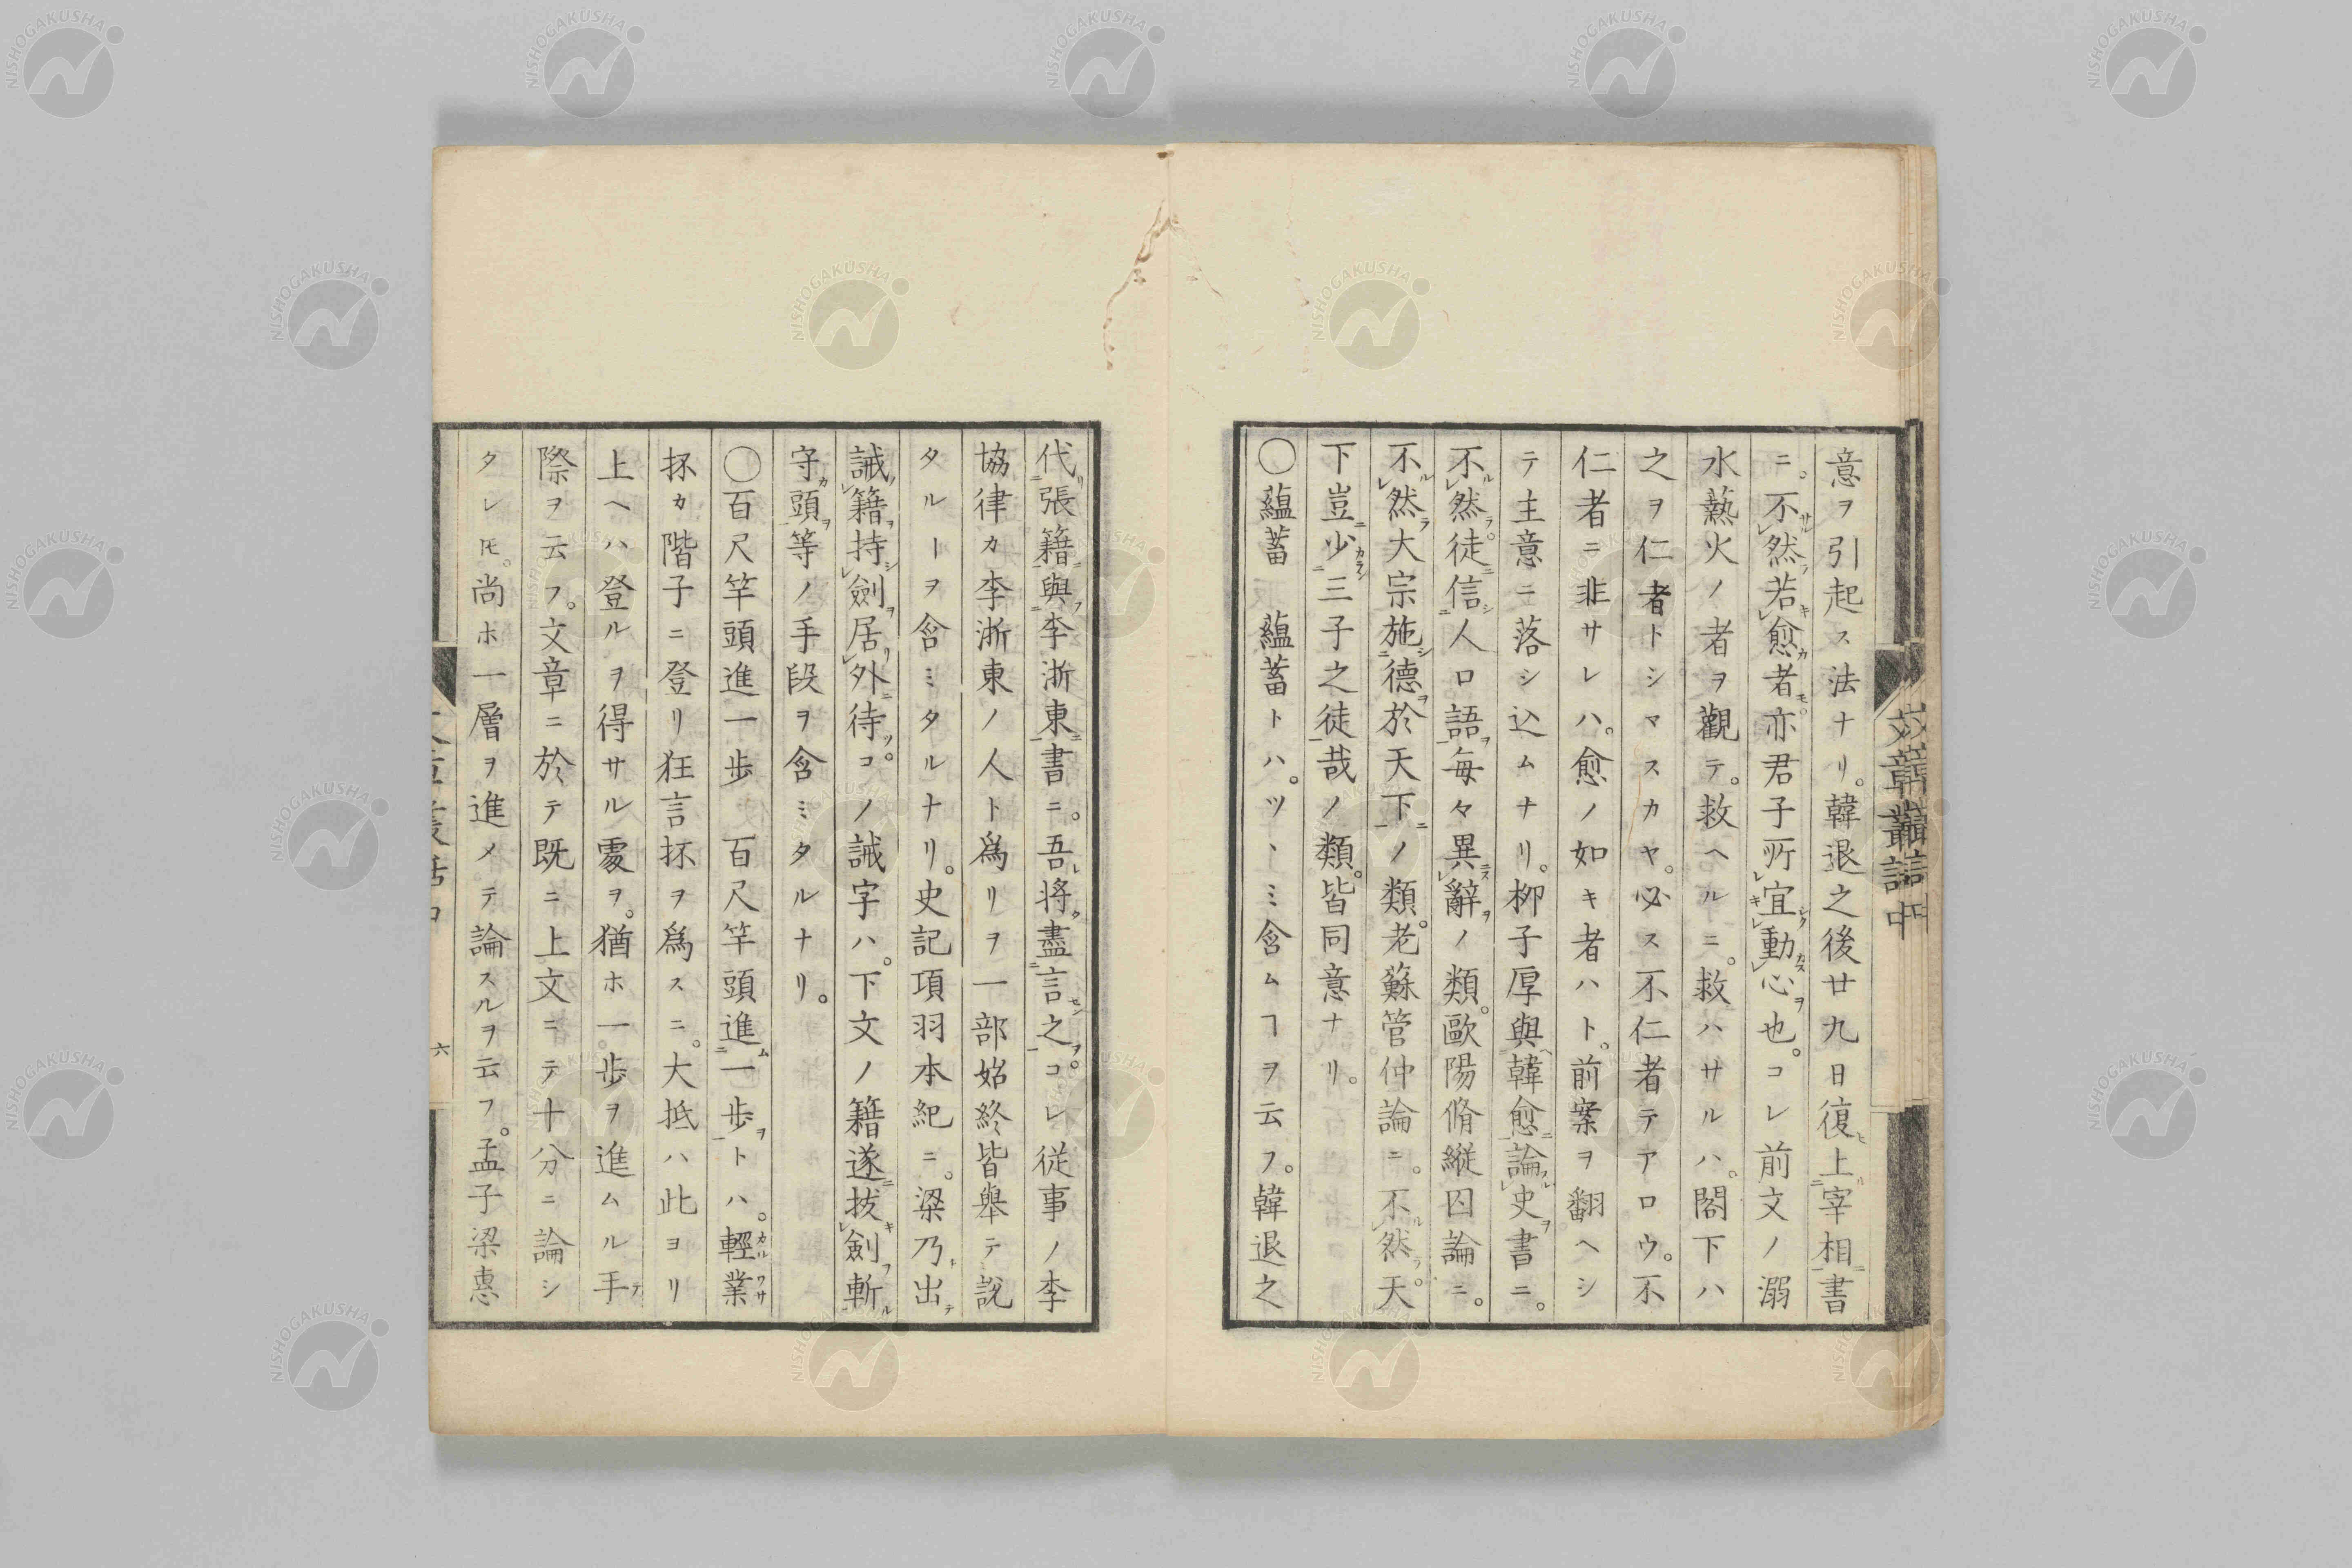 意ヲ引起ス法ナリ。韓退之後廿九日復上宰相書
ニ。不然若愈者亦君子所宜動心也。コレ前文ノ溺
水𤍠火ノ者ヲ觀テ。救ヘルニ。救ハサルハ。閤下ハ
之ヲ仁者トシマスカヤ。必ス不仁者テアロウ。不
仁者ニ非サレハ。愈ノ如キ者ハト。前案ヲ翻ヘシ
テ主意ニ落シ込ムナリ。柳子厚與韓愈論史書ニ。
不然徒信人口語每々異辭ノ類。歐陽脩縱囚論ニ。
不然大宗施德於天下ノ類。老蘇管仲論ニ。不然天
下豈少三子之徒哉ノ類。皆同意ナリ。
〇蘊蓄 蘊蓄トハ。ツヽミ含ムヿヲ云フ。韓退之
代張籍與李浙東書ニ。吾將盡言之。コレ従事ノ李
協律カ李浙東ノ人ト爲リヲ一部始終皆舉テ說
タルトヲ含ミタルナリ。史記項羽本紀ニ。梁乃出
誡籍持劍居外待。コノ誡字ハ。下文ノ籍遂拔劍斬
守頭等ノ手段ヲ含ミタルナリ。
〇百尺竿頭進一歩 百尺竿頭進一歩トハ。輕業
抔カ階子ニ登リ狂言抔ヲ爲スニ。大抵ハ此ヨリ
上ヘハ登ルヲ得サル處ヲ。猶ホ一歩ヲ進ムル手
際ヲ云フ。文章ニ於テ既ニ上文ニテ十分ニ論シ
タレ𪜈。尚ホ一層ヲ進メテ論スルヲ云フ。孟子梁惠
文章叢話 中
六
NISHOGAKUSHA